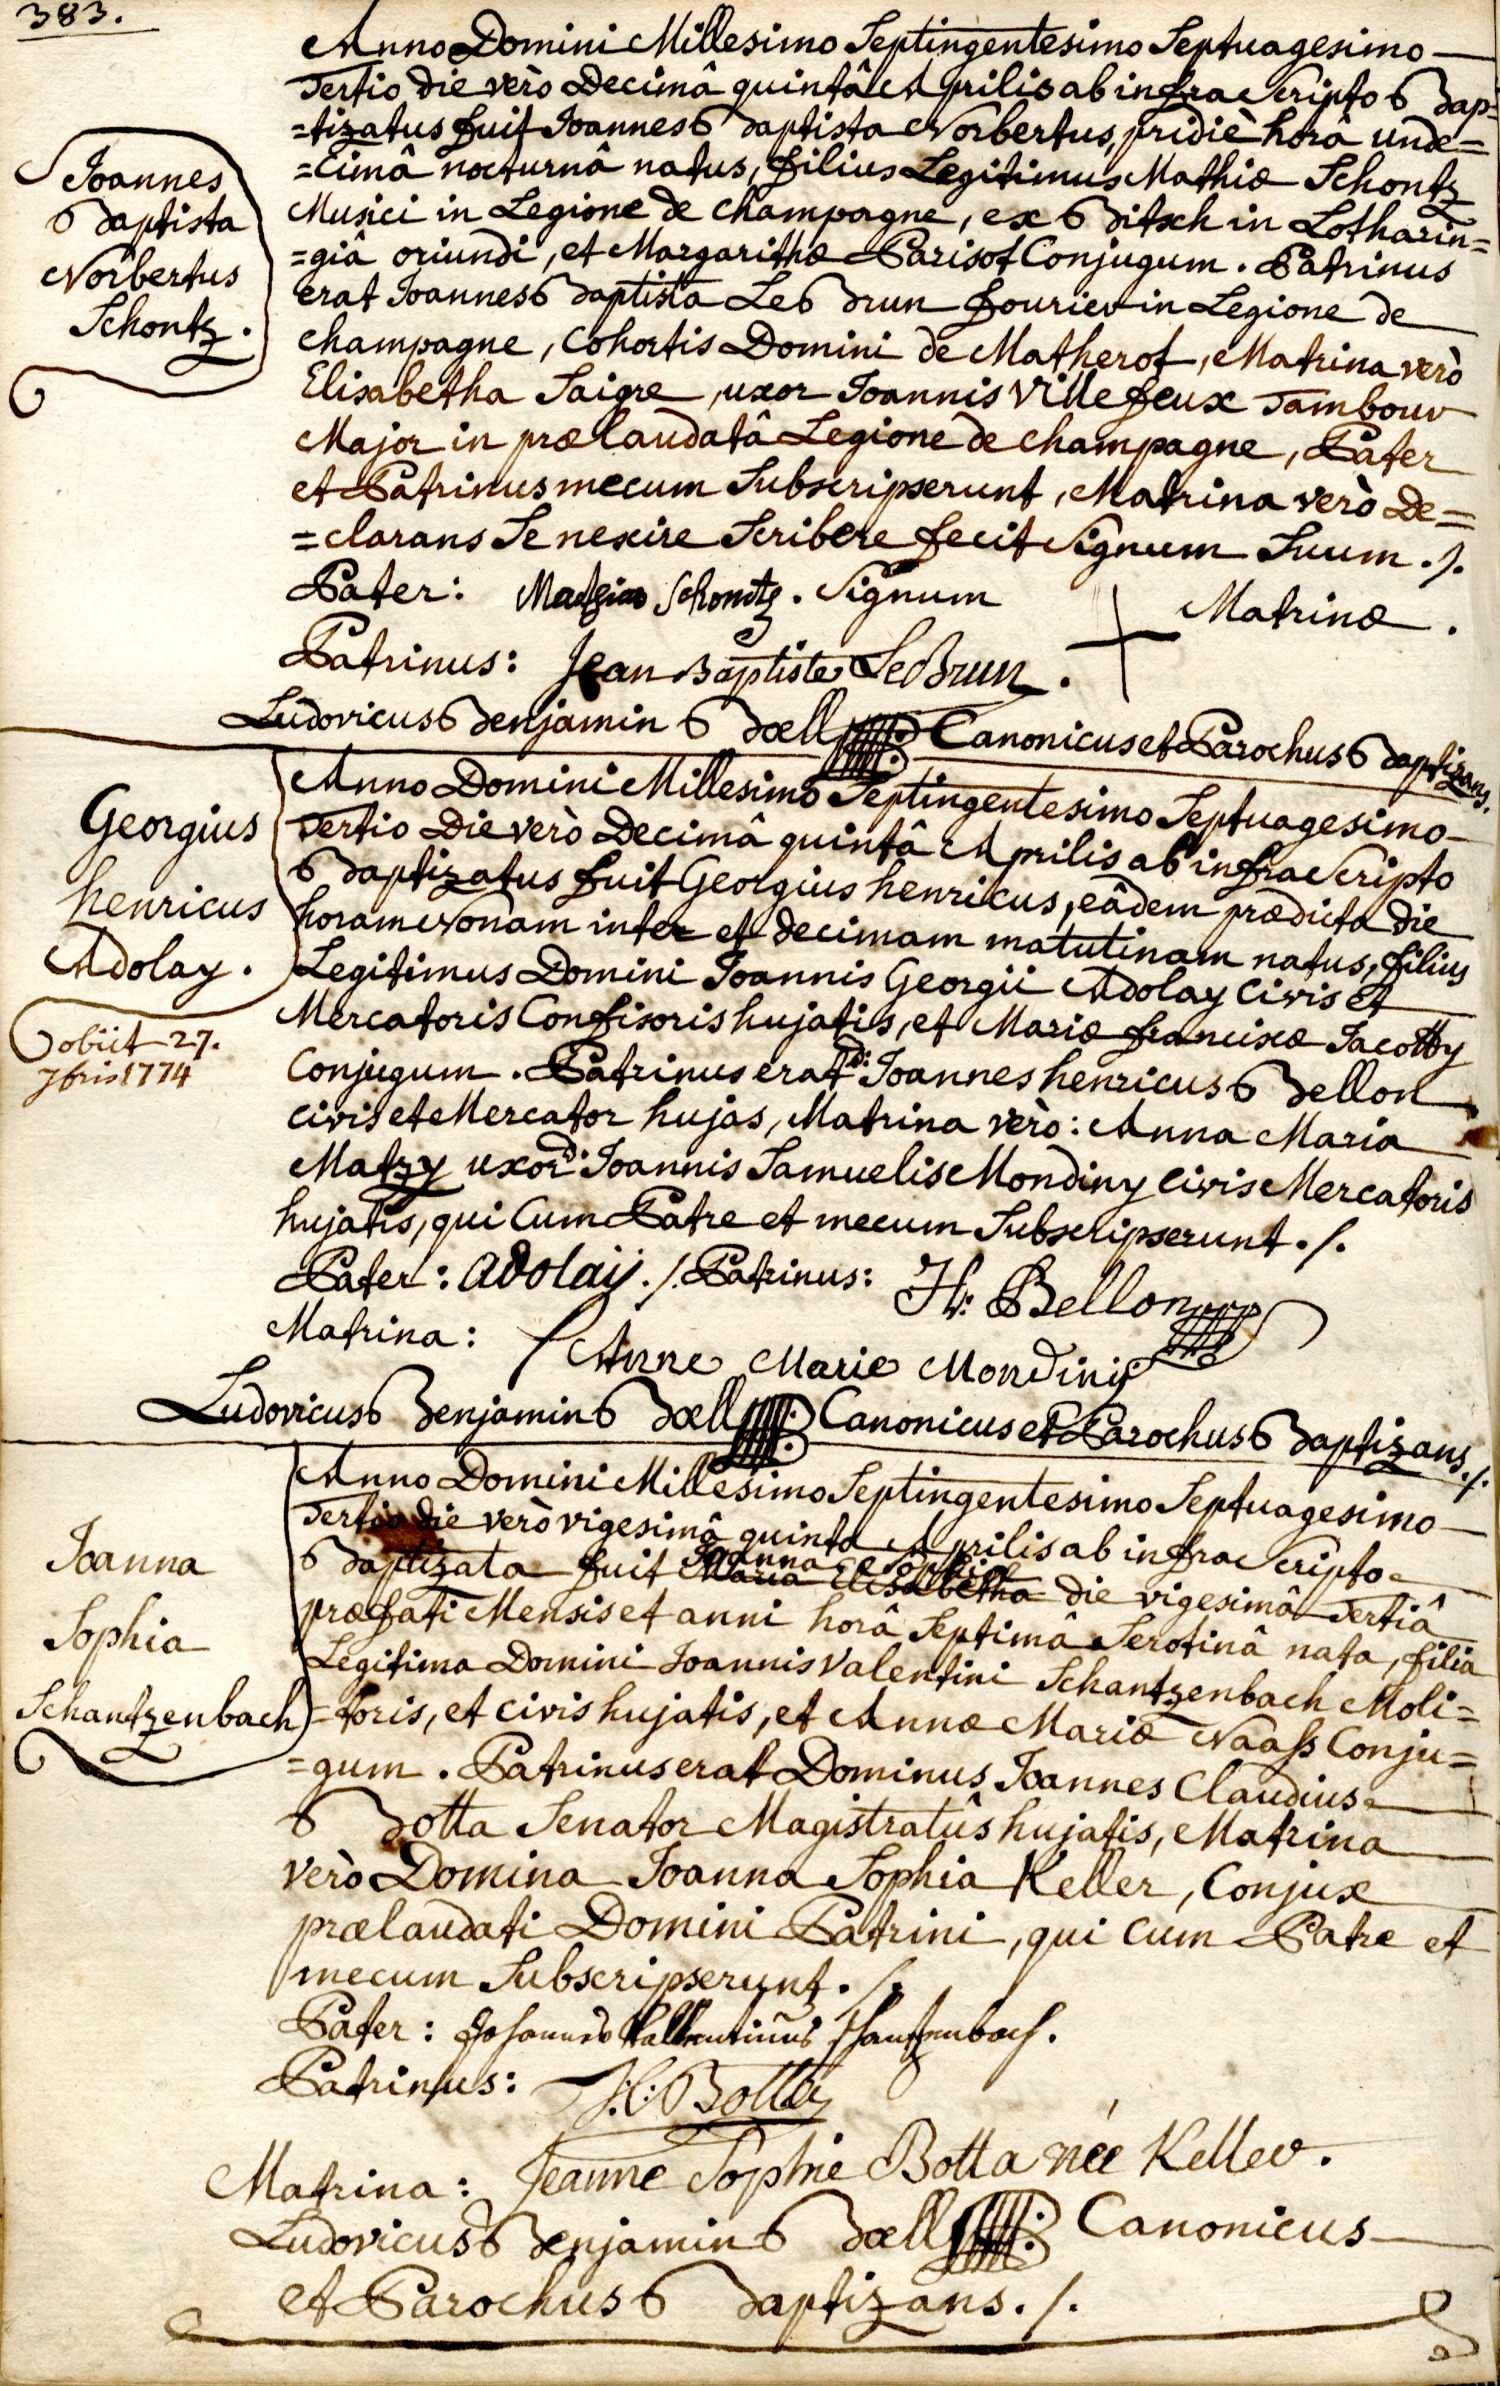 383.
Joannes
Baptista
Norbertus
Schontz.
Anno Domini Millesimo Septingentesimo Septuagesimo
Tertio die verò Decimâ quintâ Aprilis ab infra Scripto Bap=
=tizatus fuit Joannes Baptista Norbertus, pridiè horâ unde=
=Cimâ nocturnâ natus, filius Legitimus Mathiæ Schontz
Musici in Legione de Champagne, ex Bitsch in Lotharin=
=giâ oriundi, et Margarithæ Parisot Conjugum. Patrinus
erat Joannes Baptista Le Brun fourier in Legione de
Champagne, Cohortis Domini de Matherot, Matrina verò
Elisabetha Saigre, uxor Joannis Villefeux Tambour
Major in prælaudatâ Legione de Champagne, Pater
et Patrinus mecum Subscripserunt, Matrina verò De=
=clarans Se nescire Scribere fecit Signum Suum ./.
Pater: Mathias Schontz. Signum + Matrinæ.
Patrinus: Jean Baptiste LeBrun.
Ludovicus Benjamin Boell Canonicus et Parochus Baptizans.
Georgius
henricus
Adolay.
obiit 27.
7bris 1774
Anno Domini Millesimo Septingentesimo Septuagesimo
Tertio Die verò Decimâ quintâ Aprilis ab infra Scripto
Baptizatus fuit Georgius henricus, eâdem prædicta Die
horam Nonam inter et decimam matutinam natus, filius
Legitimus Domini Joannis Georgii Adolay Civis et
Mercatoris Confisoris hujatis, et Mariæ franciscæ Jacotty
Conjugum. Patrinus erat D: Joannes henricus Bellon
Civis et Mercator hujas, Matrina verò: Anna Maria
Matzy uxor D: Joannis Samuelis Mondiny Civis Mercatoris
hujatis, qui Cum Patre et mecum Subscripserunt ./.
Pater: adolaÿ ./. Patrinus: H: Bellon
Matrina: Anne Marie Mondiniÿ
Ludovicus Benjamin Boell Canonicus et Parochus Baptizans ./.
Joanna
Sophia
Schantzenbach
Anno Domini Millesimo Septingentesimo Septuagesimo
Tertio die verò vigesimâ quinta Aprilis ab infra Scripto
Joanna Sophia
Baptizata fuit Maria Elisabetha die vigesimâ Tertiâ
præfati Mensis et anni horâ Septimâ Serotinâ nata, filia
Legitima Domini Joannis Valentini Schantzenbach Moli=
=toris, et Civis hujatis, et Annæ Mariæ Naaß Conju=
=gum. Patrinus erat Dominus Joannes Claudius
Botta Senator Magistratûs hujatis, Matrina
verò Domina Joanna Sophia Keller, Conjux
prælaudati Domini Patrini, qui Cum Patre et
mecum Subscripserunt ./.
Pater: Johannes Vallentinus Schantzenbach.
Patrinus: J: C: Botta
Matrina: Jeanne Sophie Botta née Keller.
Ludovicus Benjamin Boell Canonicus
et Parochus Baptizans ./.